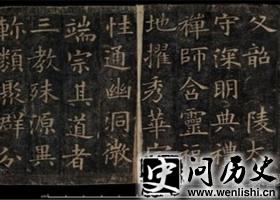 父韶陵太
守深明典禮
禪師含靈福
地擢秀華
性通幽洞微
端宗其道者
三教殊源異
軫類聚群分
史 问历史
www.wenlishi.cn